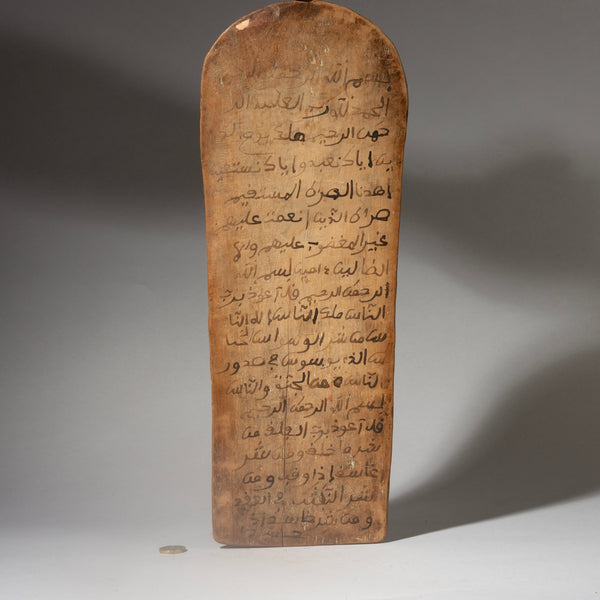 بسم الله الرحمن الرحيم
الحمد لله رب العلمين الر
حمن الرحيم ملك يوم الد
ين اياك نعبد واياك نستعين
اهدنا الصراط المستقيم
صراط الذين انعمت عليهم
غير المغضوب عليهم ولا
الضالين امين بسم الله
الرحمن الرحيم قل اعوذ برب
الناس ملك الناس اله النا
س من شر الوسواس الخنا
س الذي يوسوس في صدور
الناس من الجنة والناس
بسم الله الرحمن الرحيم
قل اعوذ برب الفلق من
شر ما خلق ومن شر
غاسق اذا وقب ومن
شر النفثت في العقد
ومن شر حاسد اذا
حسد